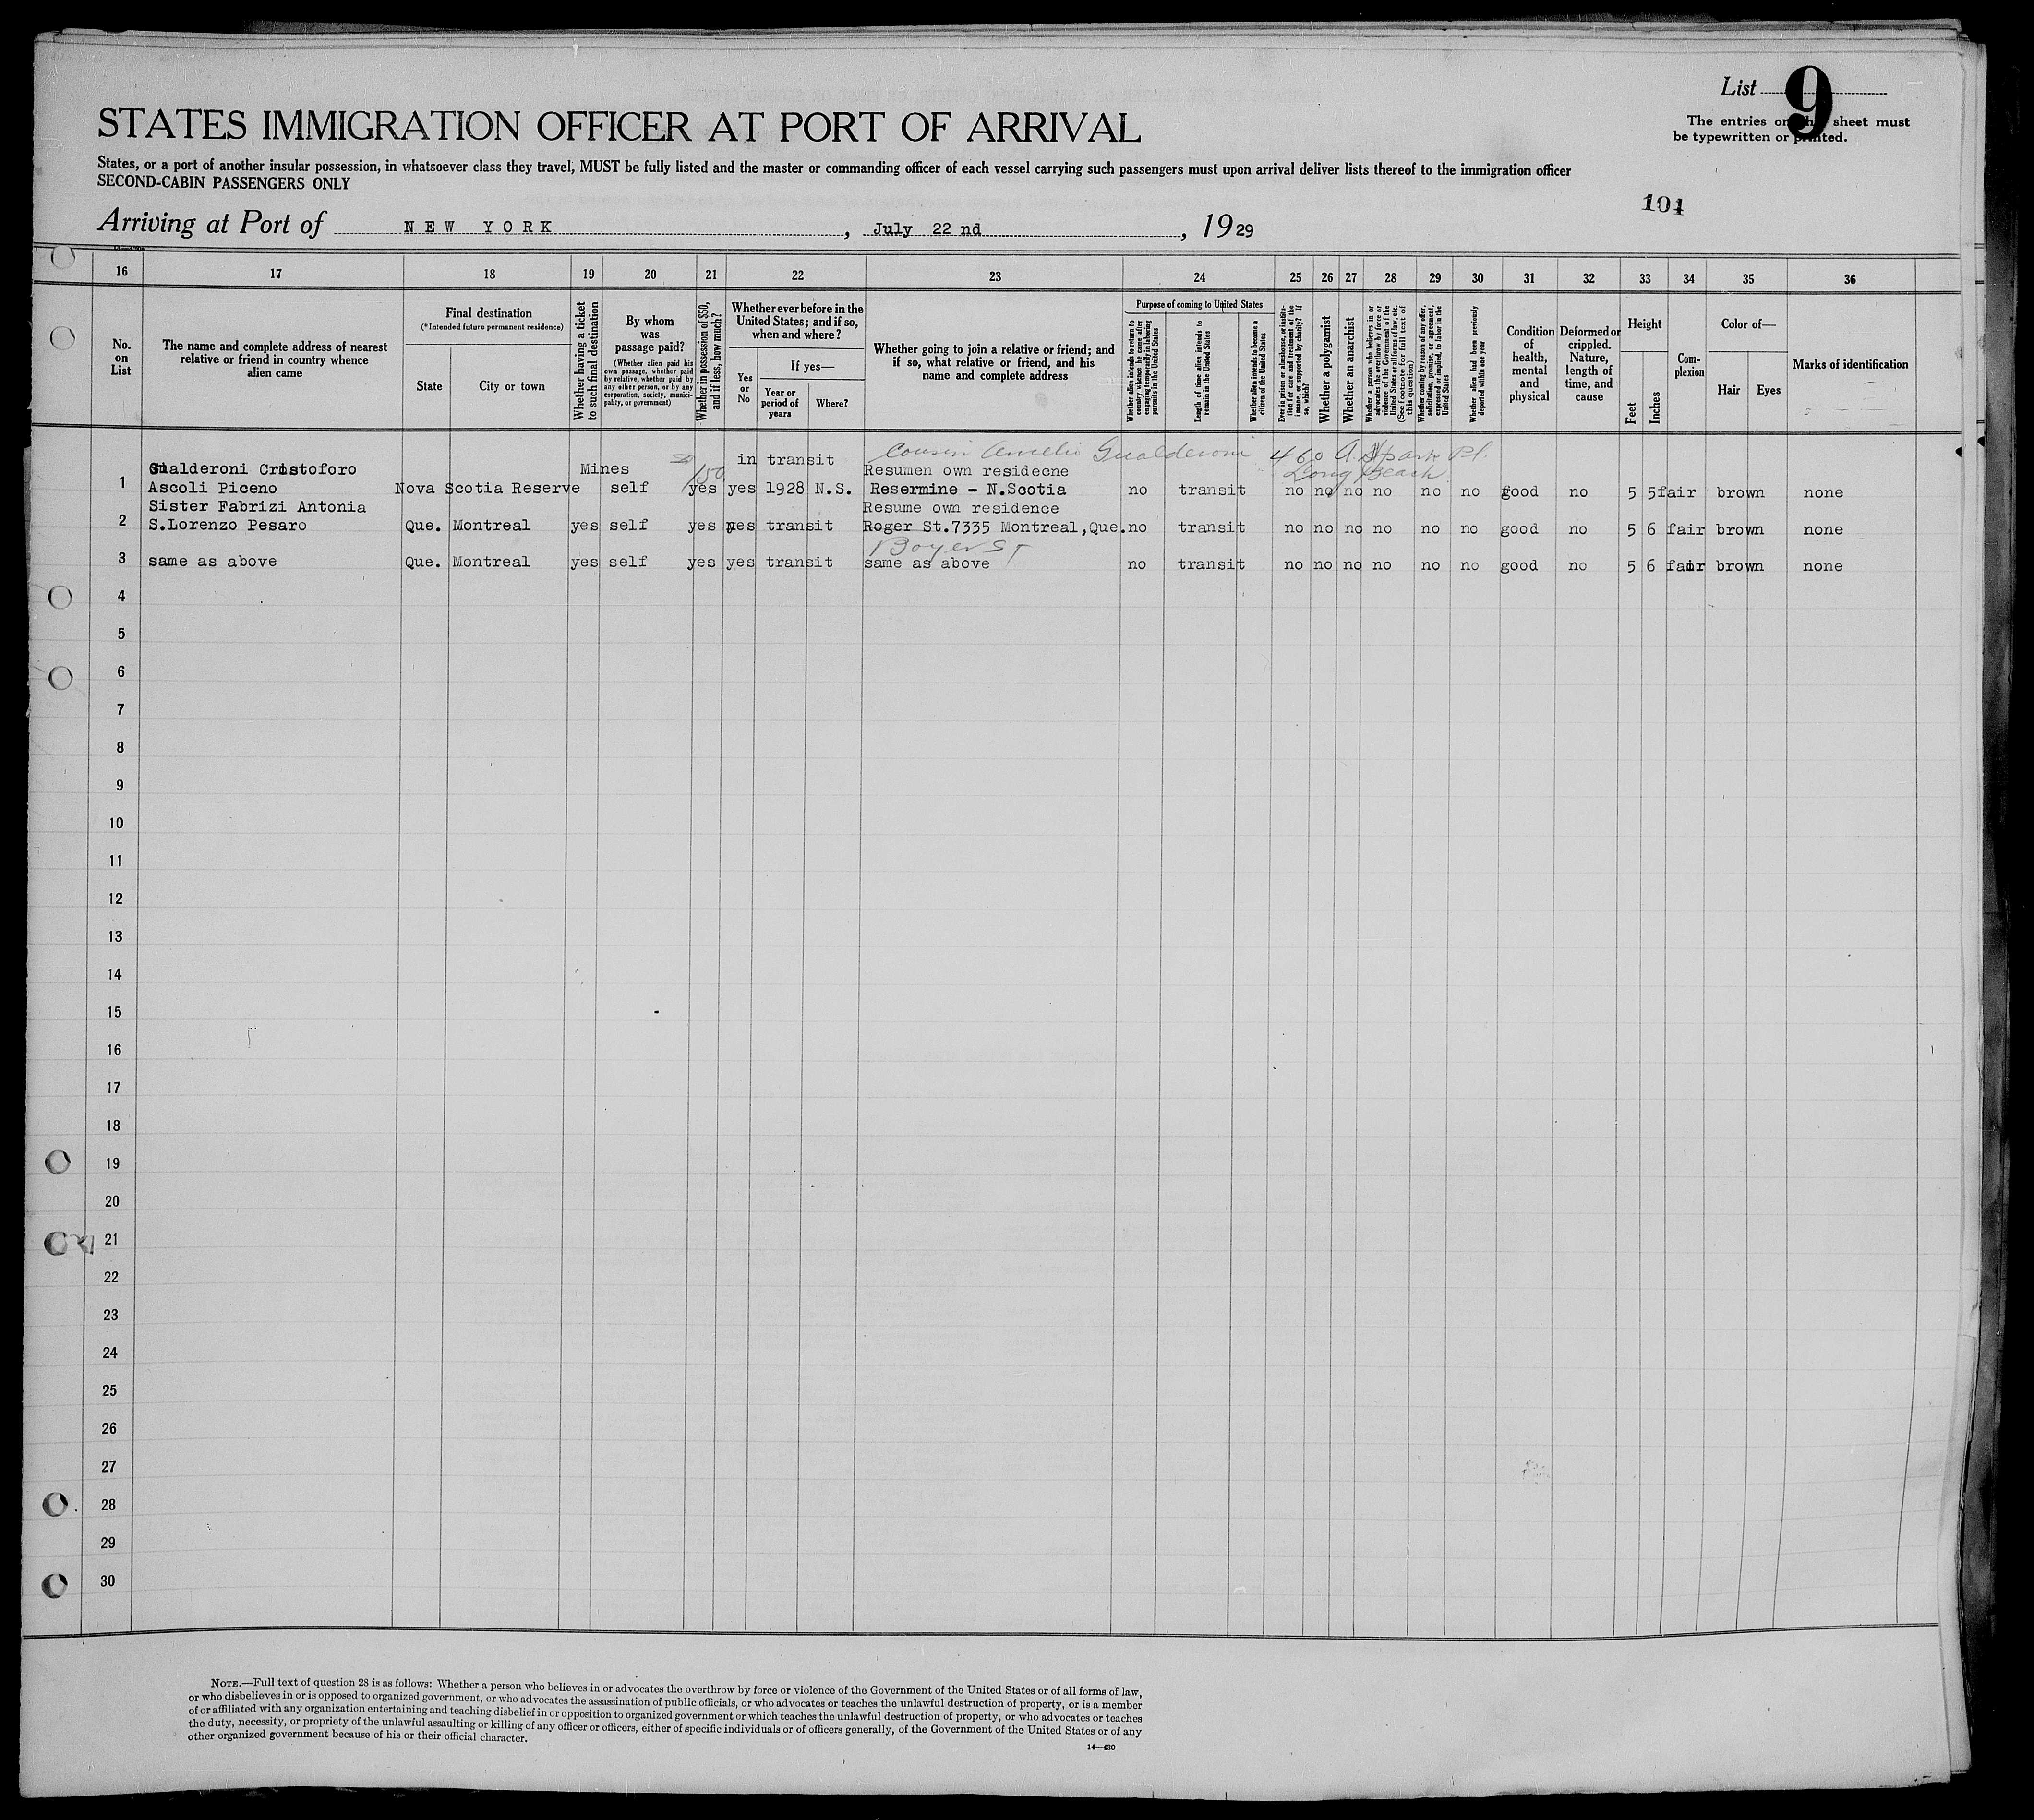 List 9
The entries on this sheet must
be typewritten or printed.
STATES IMMIGRATION OFFICER AT PORT OF ARRIVAL
States, or a port of another insular possession, in whatsoever class they travel, MUST be fully listed and the master or commanding officer of each vessel carrying such passengers must upon arrival deliver lists thereof to the immigration officer
SECOND-CABIN PASSENGERS ONLY
101
Arriving at Port of NEW YORK, July 22 nd, 1929
16 17 18 19 20 21 22 23 24 25 26 27 28 29 30 31 32 33 34 35 36
No. on List
The name and complete address of nearest relative or friend in country whence alien came
Final destination
(*Intended future permanent residence)
State
City or town
Whether having a ticket to such final destination
By whom was passage paid?
(Whether alien paid his own passage, whether paid by relative, whether paid by any other person, or by any corporation, society, municipality, or government)
Whether in possession of $50, and if less, how much?
Whether ever before in the United States; and if so, when and where?
Yes or No
If yes—
Year or period of years
Where?
Whether going to join a relative or friend; and if so, what relative or friend, and his name and complete address
Purpose of coming to United States
Whether alien intends to return to country whence he came after engaging temporarily in laboring pursuits in the United States
Length of time alien intends to remain in the United States
Whether alien intends to become a citizen of the United States
Ever in prison or almshouse, or institution for care and treatment of the insane, or supported by charity? If so, which?
Whether a polygamist
Whether an anarchist
Whether a person who believes in or advocates the overthrow by force or violence of the Government of the United States or all forms of law, etc. (See footnote for full text of this question)
Whether coming by reason of any offer, solicitation, promise, or agreement, expressed or implied, to labor in the United States
Whether alien had been previously deported within one year
Condition of health, mental and physical
Deformed or crippled. Nature, length of time, and cause
Height
Feet
Inches
Complexion
Color of—
Hair
Eyes
Marks of identification
Cousin Amelio Gualderoni 460 A. Park Pl.
Long Beach
Gualderoni Cristoforo Mines 150 in transit Resumen own residecne
1 Ascoli Piceno Nova Scotia Reserve self yes yes 1928 N.S. Resermine - N.Scotia no transit no no no no no no good no 5 5 fair brown none
Sister Fabrizi Antonia Resume own residence
2 S.Lorenzo Pesaro Que. Montreal yes self yes yes transit Roger St.7335 Montreal,Que. no transit no no no no no no good no 5 6 fair brown none
Boyer St
3 same as above Que. Montreal yes self yes yes transit same as above no transit no no no no no no good no 5 6 fair brown none
4
5
6
7
8
9
10
11
12
13
14
15
16
17
18
19
20
21
22
23
24
25
26
27
28
29
30
NOTE.—Full text of question 28 is as follows: Whether a person who believes in or advocates the overthrow by force or violence of the Government of the United States or of all forms of law,
or who disbelieves in or is opposed to organized government, or who advocates the assassination of public officials, or who advocates or teaches the unlawful destruction of property, or is a member
of or affiliated with any organization entertaining and teaching disbelief in or opposition to organized government or which teaches the unlawful destruction of property, or who advocates or teaches
the duty, necessity, or propriety of the unlawful assaulting or killing of any officer or officers, either of specific individuals or of officers generally, of the Government of the United States or of any
other organized government because of his or their official character.
14—430